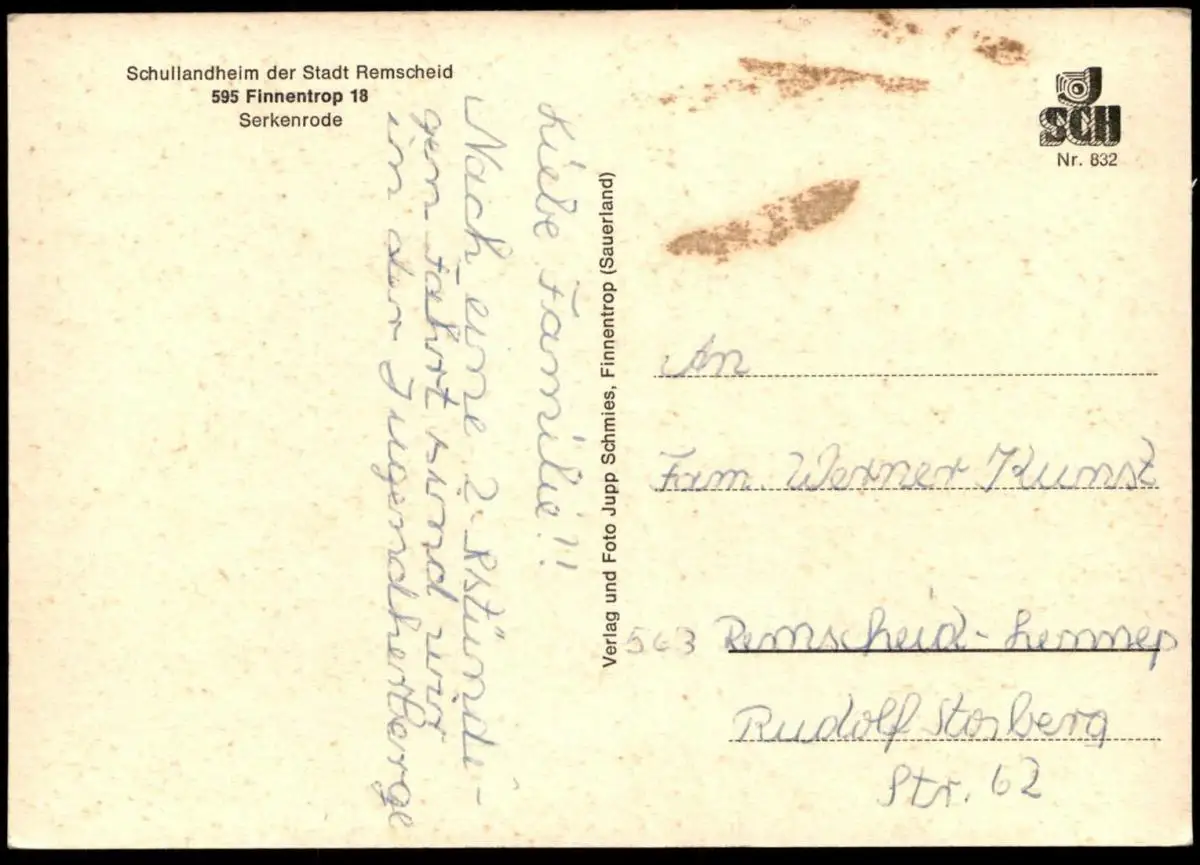 Schullandheim der Stadt Remscheid
595 Finnentrop 18
Serkenrode
Liebe Familie!!
Nach eine 2-Rstündi-
gen Fahrt sind wir
in der Jugendherberge
Verlag und Foto Jupp Schmies, Finnentrop (Sauerland)
J
SCH
Nr. 832
An
Fam. Werner Kunst
563 Remscheid-Lennep
Rudolf Stosberg
Str. 62